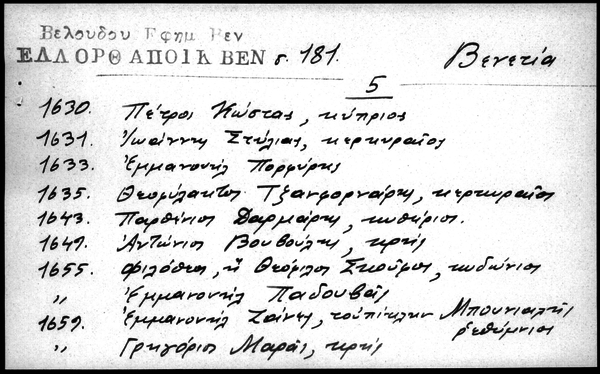 Βελουδου Εφημ Βεν
ΕΛΛΟΡΘ ΑΠΟΙΚ ΒΕΝ σ. 181. Βενετία
5
1630. Πέτρος Κώστας, κύπριος
1631. Ἰωάννης Στύλιας, κερκυραῖος
1633. Ἐμμανουήλ Πορφύρης
1635. Θεοφύλακτος Τζανφορνάρης, κερκυραῖος
1643. Παρθένιος Δαρμάρης, κυθήριος.
1649. Ἀντώνιος Βουβούλης, κρής
1655. Φιλόθεος, ἤ Θεόφιλος Σκοῦφος, κυδώνιος
〃 Ἐμμανουήλ Παδουβᾶς
1659. Ἐμμανουήλ Τζάνες, τοὐπίκλην Μπουνιαλῆς
ρεθύμνιος
〃 Γρηγόριος Μαρᾶς, κρής